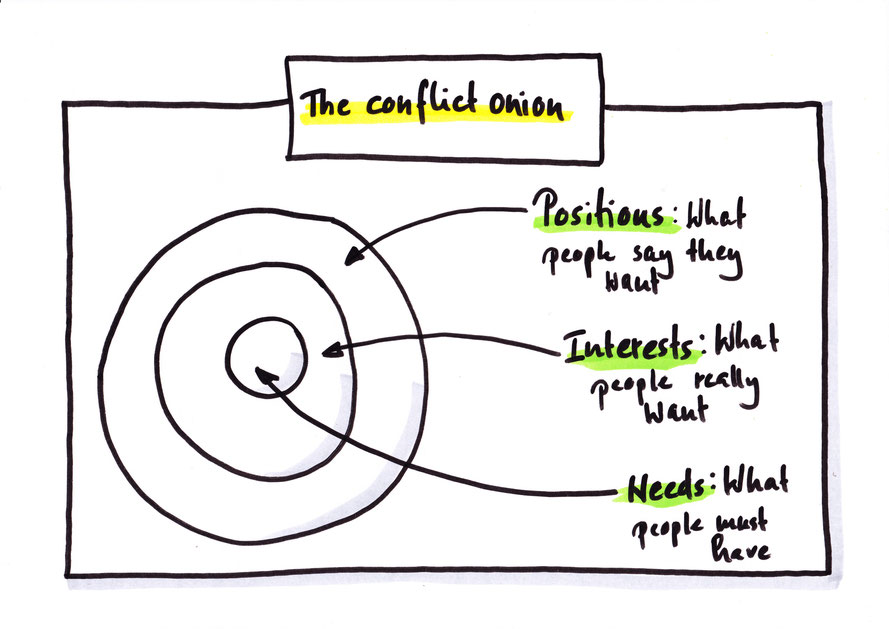 The conflict onion
Positions: What
people say they
want
Interests: What
people really
want
Needs: What
people must
have